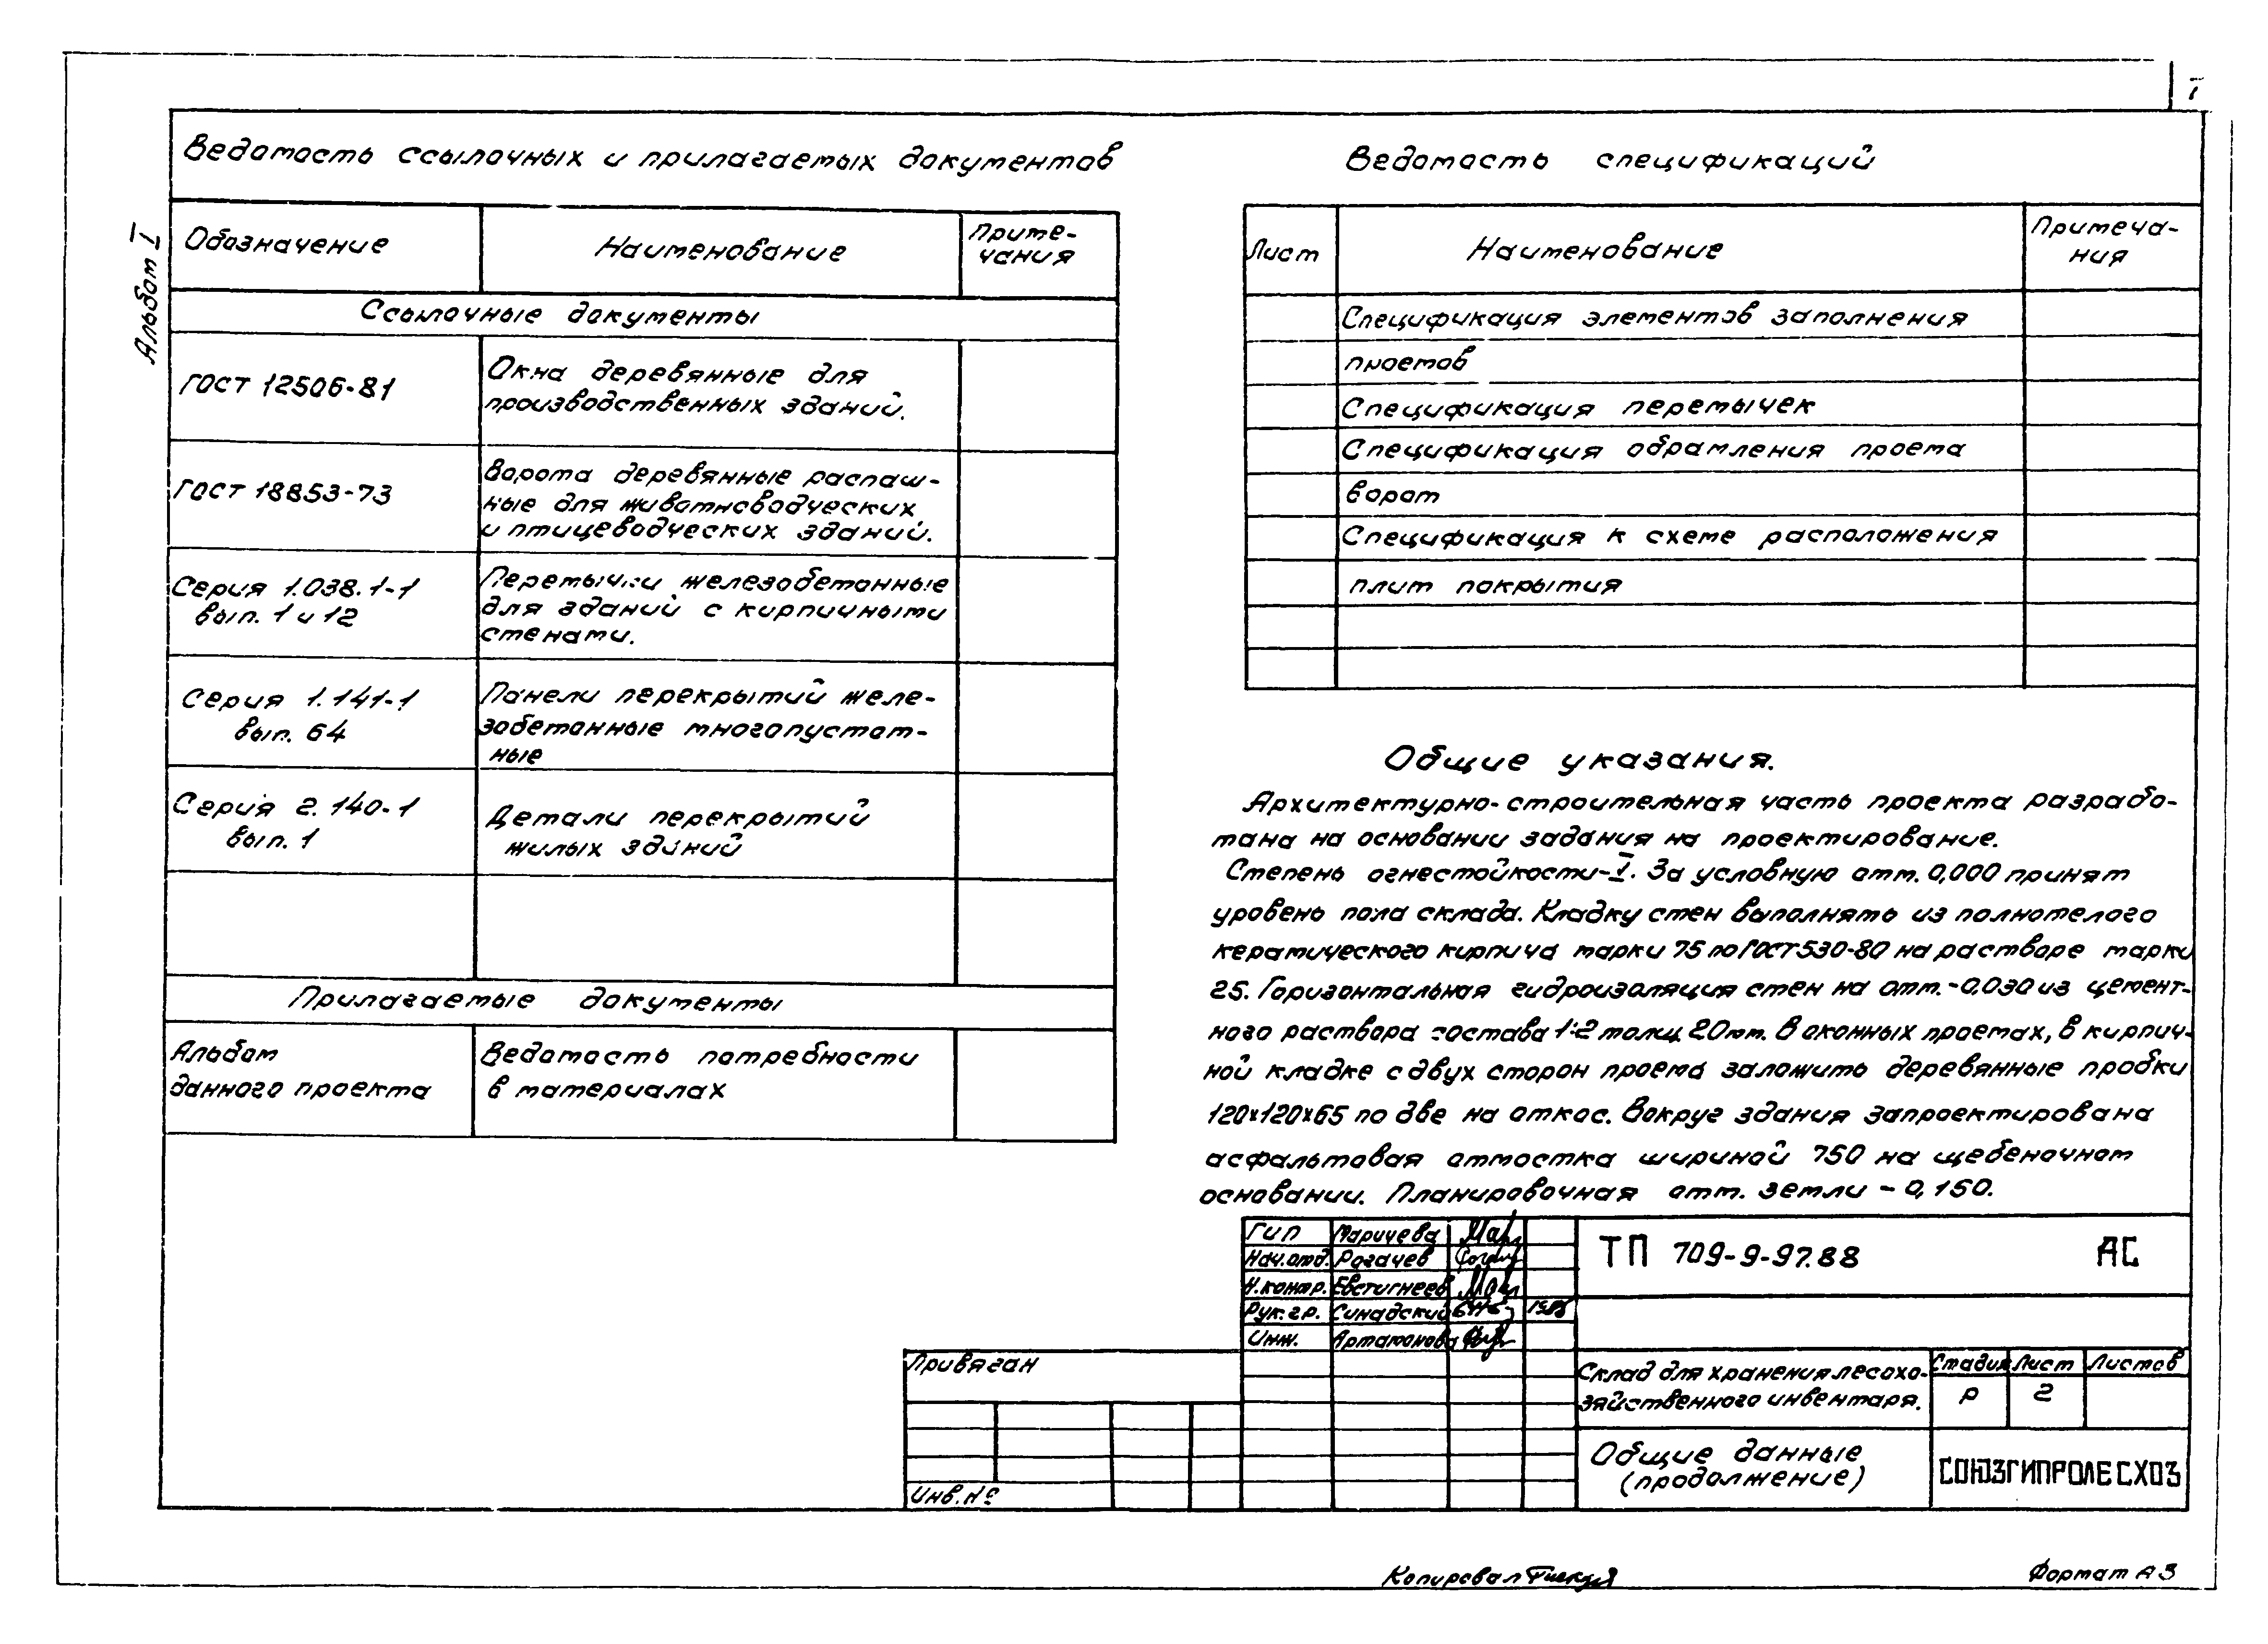 7
Альбом I
Ведомость ссылочных и прилагаемых документов
Обозначение
Наименование
Приме-
чания
Ссылочные документы
ГОСТ 12506-81
Окна деревянные для
производственных зданий.
ГОСТ 18853-73
Ворота деревянные распаш-
ные для животноводческих
и птицеводческих зданий.
Серия 1.038.1-1
вып. 1 и 12
Перемычки железобетонные
для зданий с кирпичными
стенами.
Серия 1.141-1
вып. 64
Панели перекрытий желе-
зобетонные многопустот-
ные
Серия 2.140-1
вып. 1
Детали перекрытий
жилых зданий
Прилагаемые документы
Альбом
данного проекта
Ведомость потребности
в материалах
Ведомость спецификаций
Лист
Наименование
Примеча-
ния
Спецификация элементов заполнения
проемов
Спецификация перемычек
Спецификация обрамления проема
ворот
Спецификация к схеме расположения
плит покрытия
Общие указания.
Архитектурно-строительная часть проекта разрабо-
тана на основании задания на проектирование.
Степень огнестойкости-I. За условную отм. 0,000 принят
уровень пола склада. Кладку стен выполнять из полнотелого
керамического кирпича марки 75 по ГОСТ 530-80 на растворе марки
25. Горизонтальная гидроизоляция стен на отм.-0,030 из цемент-
ного раствора состава 1:2 толщ. 20мм. В оконных проемах, в кирпич-
ной кладке с двух сторон проема заложить деревянные пробки
120х120х65 по две на откос. Вокруг здания запроектирована
асфальтовая отмостка шириной 750 на щебеночном
основании. Планировочная отм. земли -0,150.
ГИП Маричева
Нач.отд. Рогачев
Н.контр. Евстигнеев
Рук.гр. Синадский
Инж. Артамонова
ТП 709-9-97.88 АС
Привязан
Инв.№
Склад для хранения лесохо-
зяйственного инвентаря.
Стадия Лист Листов
Р 2
Общие данные
(продолжение)
СОЮЗГИПРОЛЕСХОЗ
Копировал
Формат А3